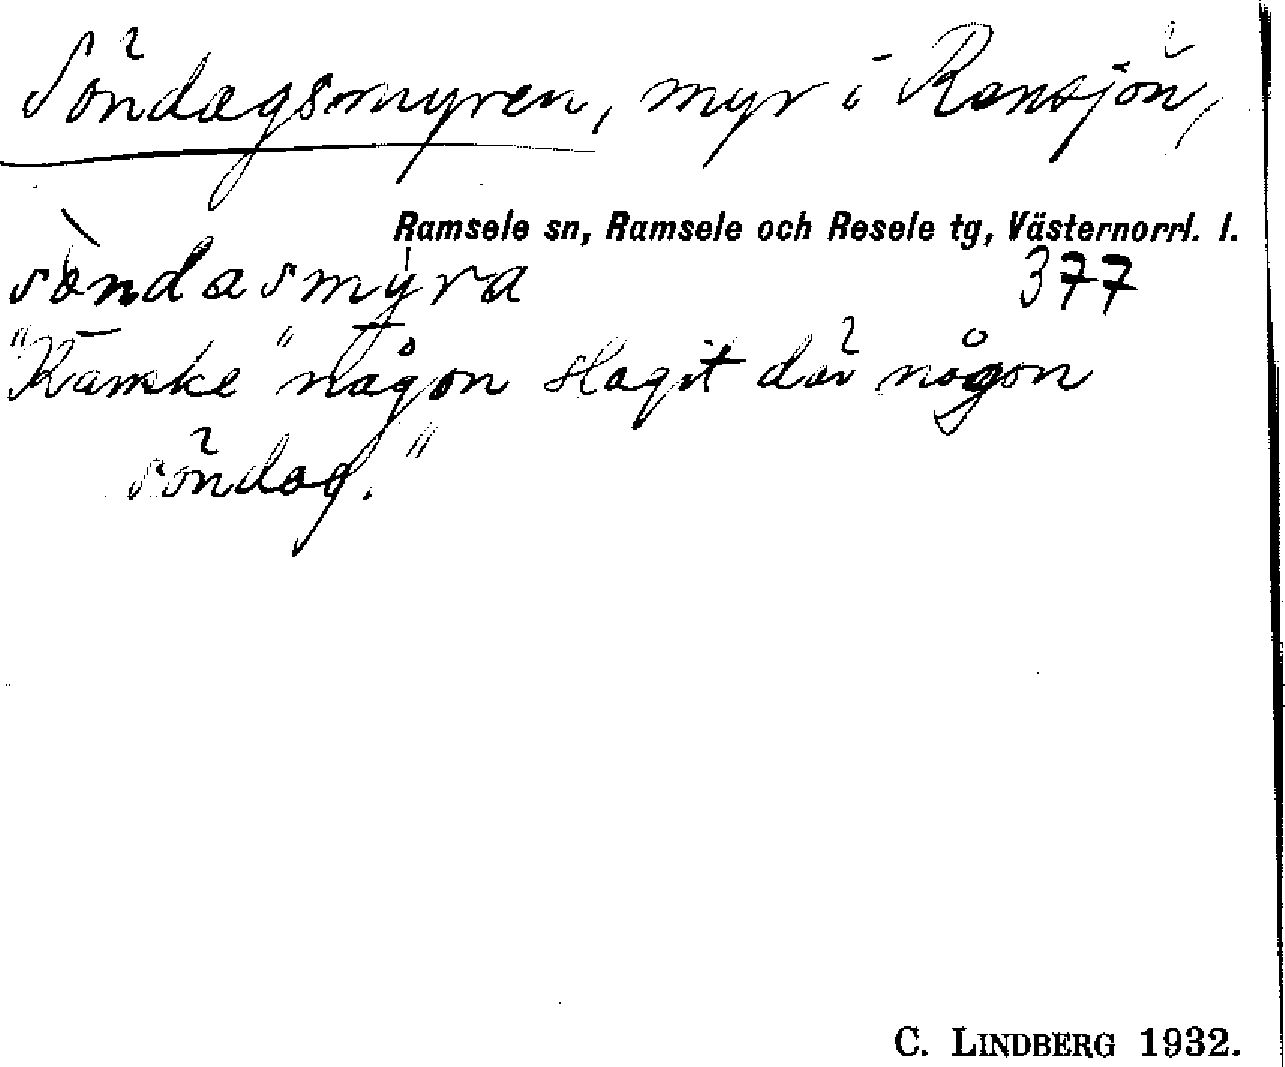 Söndagsmyren, myr i Ransjön,
Ramsele sn, Ramsele och Resele tg, Västernorrl. l.
sòndasmyra 377
"Kanske "någon slagit där någon
söndag."
C. LINDBERG 1932.